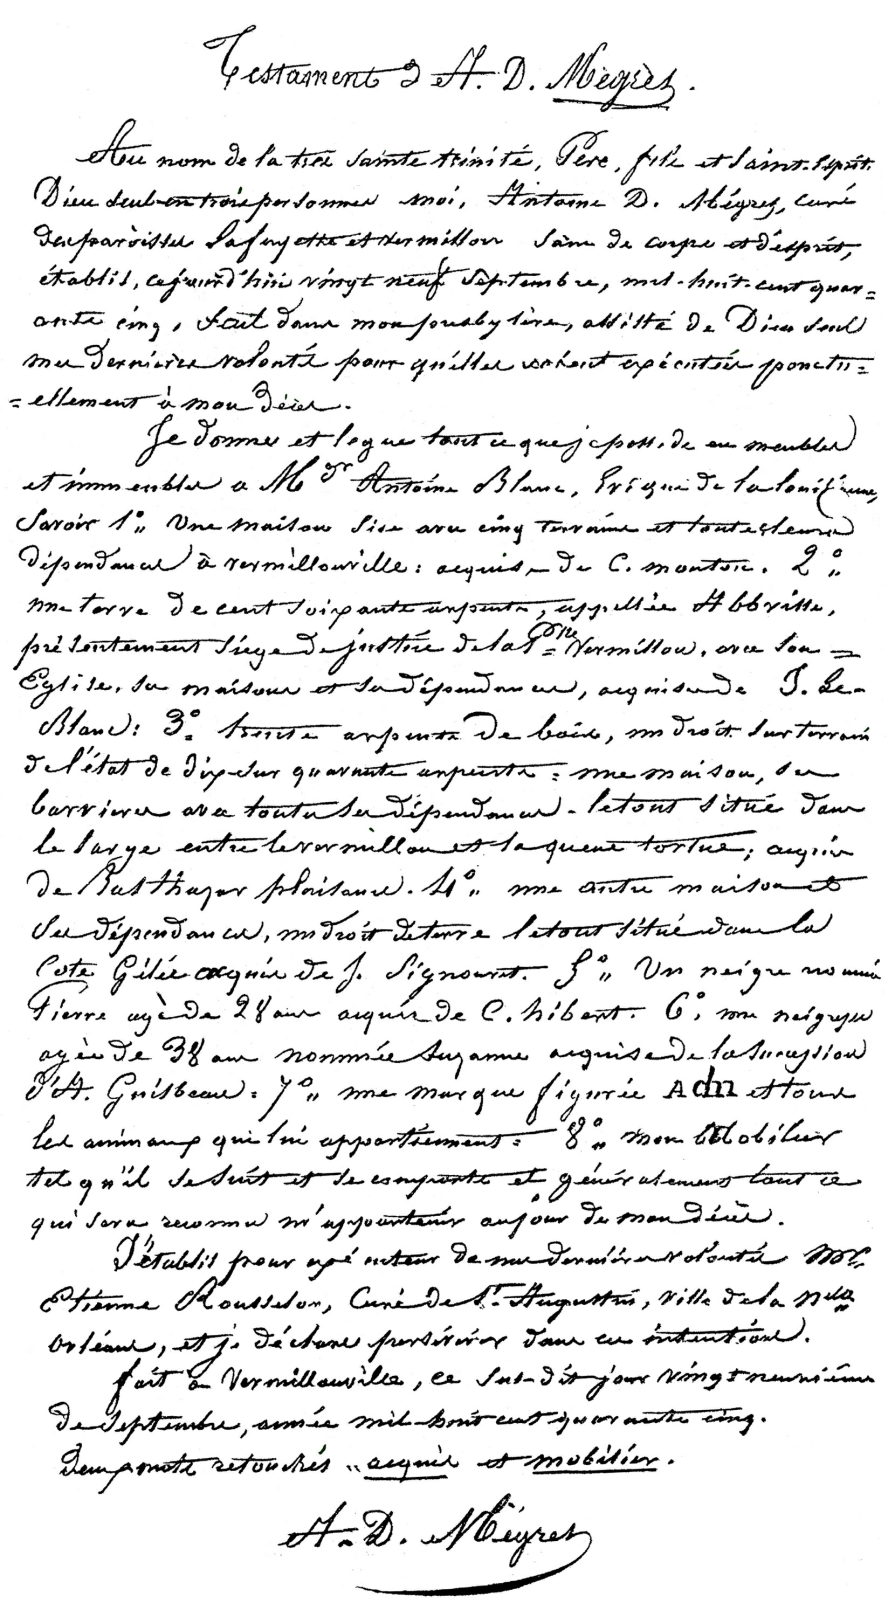 Testament d A. D. Mégret.
Au nom de la très sainte trinité, Père, fils et Saint-Esprit.
Dieu seul en trois personnes moi, Antoine D. Mégret, curé
des paroisses Lafayette et vermillon sain de corps et d'esprit,
établis, cejourd'hui vingt neuf Septembre, mil-huit-cent quar=
ante cinq, seul dans mon presbytère, assisté de Dieu seul
mes dernières volontés pour qu'elles soient exécutées ponctu=
=ellement à mon décès.
Je donne et legue tout ce que je possède en meubles
et immeubles a Mgr Antoine Blanc, Evêque de la Louisiane,
Savoir 1° Une maison sise avec cinq terrains et toutes leurs
dépendances à vermillonville: acquise de C. mouton. 2°
une terre de cent soixante arpents, appellée Abbville,
présentement siége de justice de la Psse Vermillon, avec son =
Eglise, sa maison et ses dépendances, acquise de J. Le-
Blanc: 3° trente arpents de bois, un droit sur terrain
de l'état de dix sur quarante arpents: une maison, ses
barrieres avec toutes ses dépendances - le tout situé dans
le large entre le vermillon et la queue tortue; acquis
de Balthazar plaisance. 4° une autre maison et
ses dépendances, un droit de terre le tout situé dans la
Cote Gelée acquis de J. Signouret. 5° Un neigre nommé
Pierre agé de 28 ans acquis de C. hibert. 6° une neigresse
agée de 38 ans nommée Suzanne acquise de la Sucession
d'A. Guilbeau: 7° une marque figurée Adm et tous
les animaux qui lui appartiennent: 8° mon Mobilier
tel qu'il se suit et se comporte et généralement tout ce
qui sera reconnu m'appartenir au jour de mon décès.
J'établis pour exécuteur de mes dernières volontés Mr.
Etienne Rousselon, Curé de St. Augustin, ville de la Nelle
Orléans, et je déclare persévérer dans ces intentions.
fait à Vermillonville, ce sus-dit jour vingt neuvième
de Septembre, année mil-huit cent quarante cinq.
deux mots retouchés „ acquis et mobilier.
A. D. Mégret